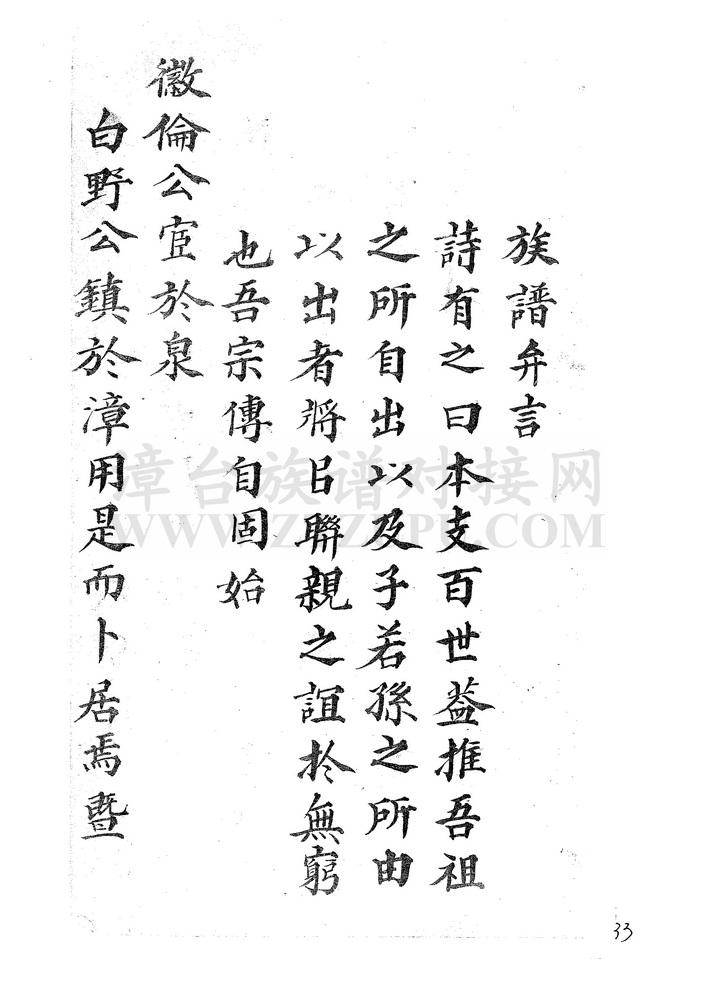 族譜弁言
詩有之曰本支百世葢推吾祖
之所自出以及子若孫之所由
以出者將㠯聯親之誼於無窮
也吾宗傳自固始
徽倫公宦於泉
白野公鎮於漳用是而卜居焉暨
漳台族谱对接网
WWW.ZTZPW.COM
33